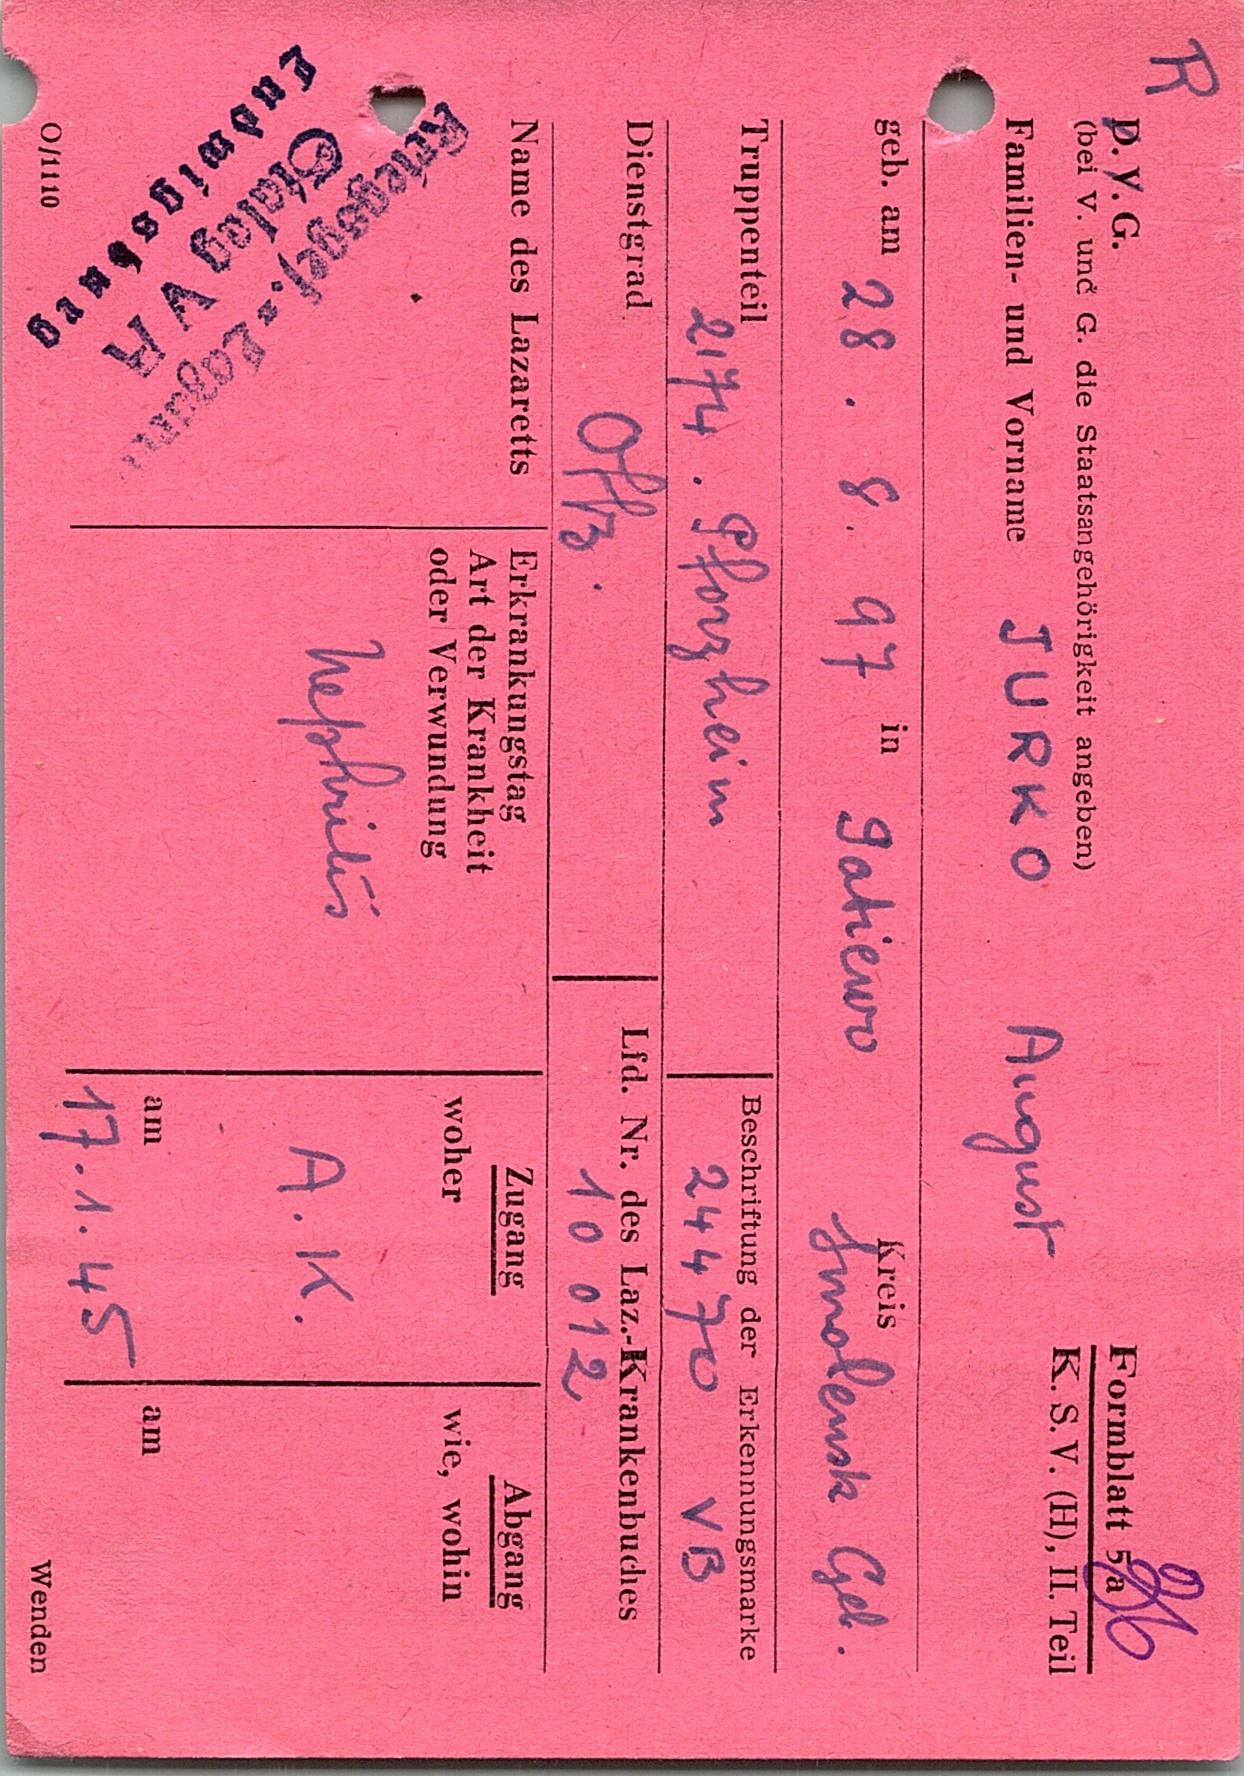 R
D. V. G.
Formblatt 5 a
(bei V. und G. die Staatsangehörigkeit angeben)
K. S. V. (H), II. Teil
Familien- und Vorname JURKO August
geb. am 28. 8. 97 in Gatiewo Kreis Smolensk Geb.
Truppenteil 2174. Pforzheim
Beschriftung der Erkennungsmarke 24470 VB
Dienstgrad Offz.
Lfd. Nr. des Laz.-Krankenbuches 10 012
Name des Lazaretts
Kriegsgef.=Lazarett
Stalag V A
Ludwigsburg
Erkrankungstag
Art der Krankheit
oder Verwundung
Nephritis
Zugang
woher
A. K.
am
17. 1. 45
Abgang
wie, wohin
am
O/1110
Wenden